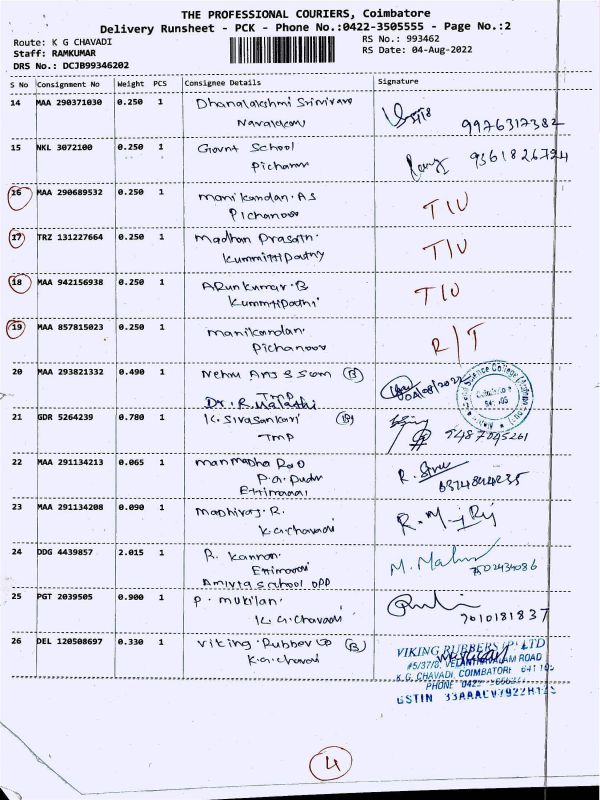 THE PROFESSIONAL COURIERS, Coimbatore
Delivery Runsheet - PCK - Phone No.:0422-3505555 - Page No.:2
Route: K G CHAVADI RS No.: 993462
Staff: RAMKUMAR RS Date: 04-Aug-2022
DRS No.: DCJB99346202
S No Consignment No Weight PCS Consignee Details Signature
14 MAA 290371030 0.250 1 Dhanalakshmi Srinivasa
9976317382
15 NKL 3072100 0.250 1 Govnt School
Pichanoor 9361826724
16 MAA 290689532 0.250 1 manikandan. AS T/U
Pichanoor
17 TRZ 131227664 0.250 1 madhan Prasath. T/U
Kummittipathy
18 MAA 942156938 0.250 1 ARun kumar. B T/U
Kummtipathi
19 MAA 857815023 0.250 1 manikandan. R/T
Pichanoor
20 MAA 293821332 0.490 1 Nehru Arts S (B)
TMP 04/08/2022
Dr. R. Malathi
21 GDR 5264239 0.780 1 K. Sivasankari (B)
TMP 9487045261
22 MAA 291134213 0.065 1 manmadha Rao
P.a. Pudur
Ettimadai
23 MAA 291134208 0.090 1 madhiraj. R.
K.G. chavadi
24 DDG 4439857 2.015 1 R. kannan. M.
Ettimadai
Amirta school opp
25 PGT 2039505 0.900 1 P. mukilan.
K.G. chavadi 7010181837
26 DEL 120508697 0.330 1 viking Rubber (B)
K.G. chavadi
VIKING RUBBERS (P) LTD
#5/37/8, VEDANTHAVALAM ROAD
K.G. CHAVADI, COIMBATORE 641 105
PHONE 0422
GSTIN
4